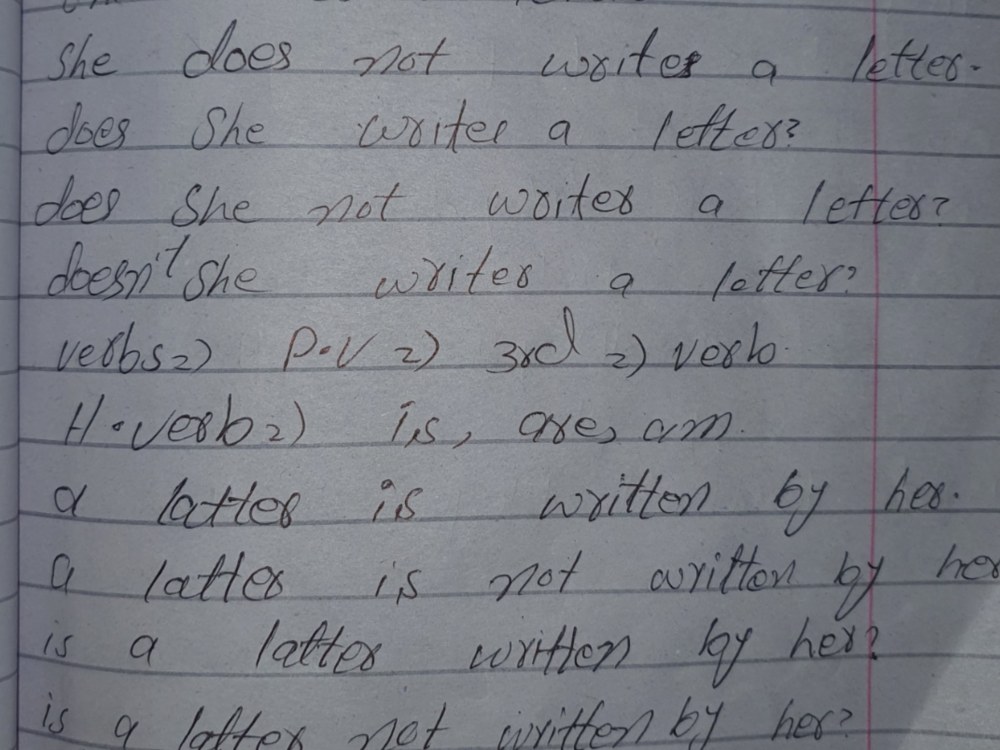 She does not writes a letter.
does She writes a letter?
does She not writes a letter?
doesn't She writes a letter?
verbs=) P.V =) 3rd =) verb
H.verb =) is, are, am.
a latter is written by her.
a latter is not written by her
is a latter written by her?
is a latter not written by her?